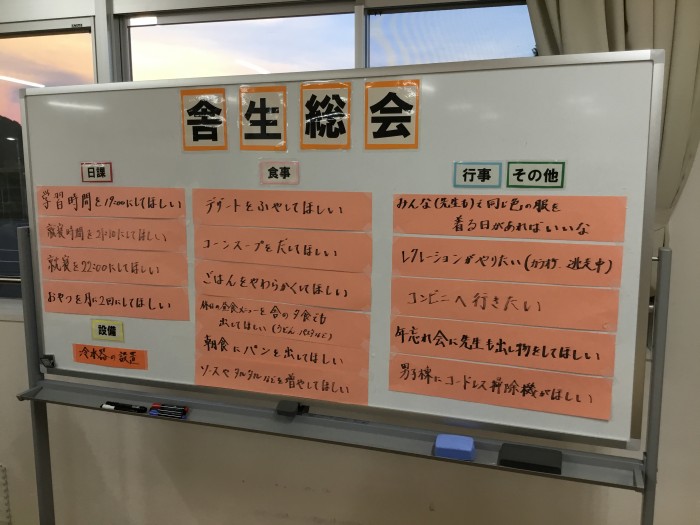 舎生総会
日課
学習時間を19:00にしてほしい
就寝時間を21:30にしてほしい
就寝を22:00にしてほしい
おやつを月に2回にしてほしい
設備
冷水器の設置
食事
デザートをふやしてほしい
コーンスープをだしてほしい
ごはんをやわらかくしてほしい
休日の昼食メニューを舎の夕食でも
出してほしい(うどん パスタなど)
朝食にパンを出してほしい
ソースやタルタルなどを増やしてほしい
行事 その他
みんな(先生も)で同じ色の服を
着る日があればいいな
レクレーションがやりたい(カラオケ、逃走中)
コンビニへ行きたい
年忘れ会に先生も出し物をしてほしい
男子棟にコードレス掃除機がほしい